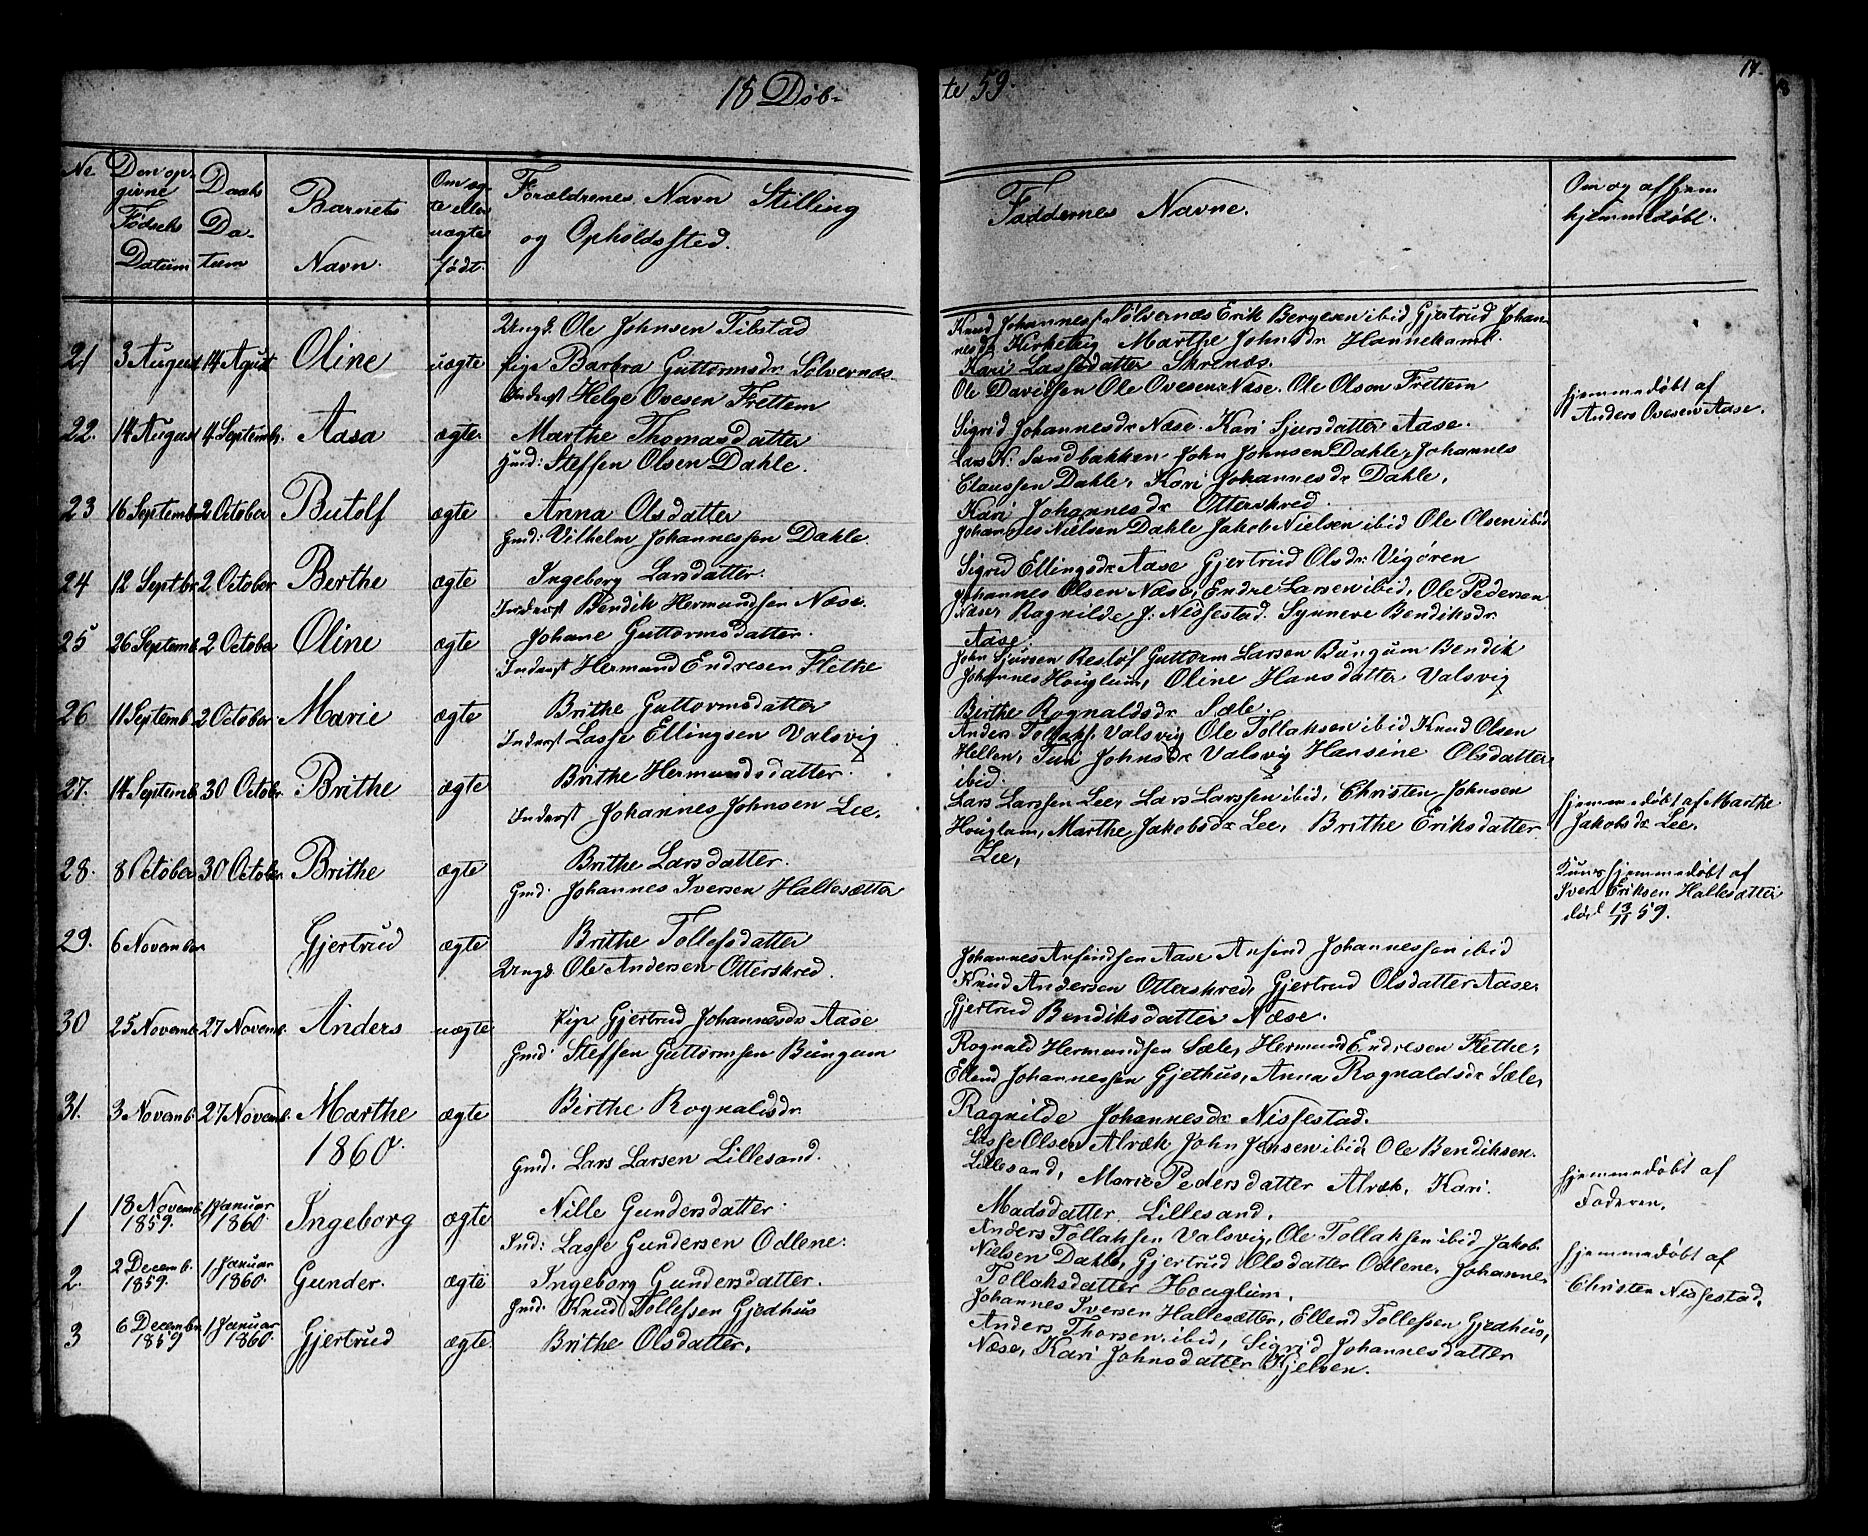 18 Døb-
te 59.
17.
No
Den op-
givne
Fødsels
Datum
Daabs
Da-
tum
Barnets
Navn.
Om æg-
te eller
uægte
født.
Forældrenes Navn Stilling
og Opholdssted.
Faddernes Navne.
Om og af hjem
hjemmedøbt.
Ungk. Ole Johnsen Tibstad
21 3 August 14 Agust Oline uægte Pige Barbra Guttormsdr Sølvernæs.
Knud Johannes. Sølsernæs Erik Bergesen ibid Gjertrud Johan-
nesdr Kirketeig Marthe Johnsdr Hannekamb.
Kari Lassedatter Skrenæs.
Inderst Helge Ovesen Frettem
22. 14 August 4 Septemb. Aasa ægte Marthe Thomasdatter
Ole Davidsen Ole Ovesen Næse. Ole Olsen Frettem
Sigrid Johannesdr Næse. Kari Sjursdatter Aase.
hjemmedøbt af
Anders Ovesen Aase.
Gmd: Steffen Olsen Dahle.
23 16 Septemb 2 October Butolf ægte Anna Olsdatter
Lars N: Sandbakken John Johnsen Dahle, Johannes
Claussen Dahle, Kari Johannesdr Dahle,
Kari Johannesdr Otterskred.
Gmd: Vilhelm Johannessen Dahle.
24 12 Septbr 2 October Berthe ægte Ingeborg Larsdatter.
Johannes Nielsen Dahle Jakob Nielsen ibid Ole Olsen ibid
Sigrid Ellingsdr Aase Gjertrud Olsdr Vigøren
Inderst Bendik Hermundsen Næse.
25 26 Septemb. 2 October Oline ægte Johane Guttormsdatter.
Johannes Olsen Næse, Endre Larsen ibid, Ole Pedersen
Næse, Ragnilde J: Nissestad. Synneve Bendiksdr.
Aase.
Inderst Hermund Endresen Flethe
26 11 Septemb. 2 October Marie ægte Brithe Guttormsdatter
John Sjursen Resløf Guttorm Larsen Bungum Bendik
Johannes Houglum, Oline Hansdatter Valsvig
Birthe Rognaldsdr Sæle.
Inderst Lasse Ellingsen Valsvig
27. 14 Septemb. 30 Octobr. Brithe ægte Brithe Hermundsdatter.
Anders Tollaks. Valsvig Ole Tollaksen ibid Knud Olsen
Hellen, Turi Johnsdr Valsvig Hansine Olsdatter
ibid.
Inderst Johannes Johnsen Lee.
28. 8 October 30 October Brithe ægte Brithe Larsdatter.
Lars Larssen Lee, Lars Larssen ibid, Christen Johnsen
Houglum, Marthe Jakobsdr Lee, Brithe Eriksdatter
Lee,
hjemmedøbt af Marthe
Jakobsdr Lee.
Gmd. Johannes Iversen Hallesætter
29. 6 November Gjertrud ægte Brithe Tollefsdatter
Kuns hjemmedøbt af
Iver Eriksen Hallesætter
død 13/11 59.
Ungk. Ole Andersen Otterskred.
30 25 Novemb. 27 Novemb. Anders uægte Pige Gjertrud Johannesdr Aase
Johannes Anfindsen Aase Anfind Johannessen ibid
Knud Andersen Otterskred, Gjertrud Olsdatter Aase,
Gjertrud Bendiksdatter Næse.
Gmd. Steffen Guttormsen Bungum
31. 3 Novemb. 27 Novemb. Marthe ægte Birthe Rognaldsdr
Rognald Hermundsen Sæle, Hermund Endresen Flethe,
Ellend Johannessen Gjethus, Anna Rognaldsdr Sæle,
Ragnilde Johannesdr Nissestad.
1860.
Gmd. Lars Larsen Lillesand.
1 18 Novemb. 1859. 1 Januar 1860 Ingeborg ægte Nille Gundersdatter.
Lasse Olsen Alræk, John Jensen ibid, Ole Bendiksen
Lillesand, Marie Pedersdatter Alræk, Kari
Madsdatter Lillesand,
hjemmedøbt af
Faderen.
Ind: Lasse Gundersen Odlene.
2. 2 Decemb. 1859. 1 Januar 1860. Gunder. ægte Ingeborg Gundersdatter.
Anders Tollaksen Valsvig, Ole Tollaksen ibid, Jakob
Nielsen Dahle, Gjertrud Olsdatter Odlene, Johanne
Tollaksdatter Houglum.
hjemmedøbt af
Christen Nissestad,
Gmd: Knud Tollefsen Gjedhus
3 6 Decembr 1859 1 Januar 1860. Gjertrud ægte Brithe Olsdatter,
Johannes Iversen Hallesætter, Ellend Tollefsen Gjedhus,
Anders Thorsen ibid, Sigrid Johannesdatter
Næse, Kari Johnsdatter Kjelven.